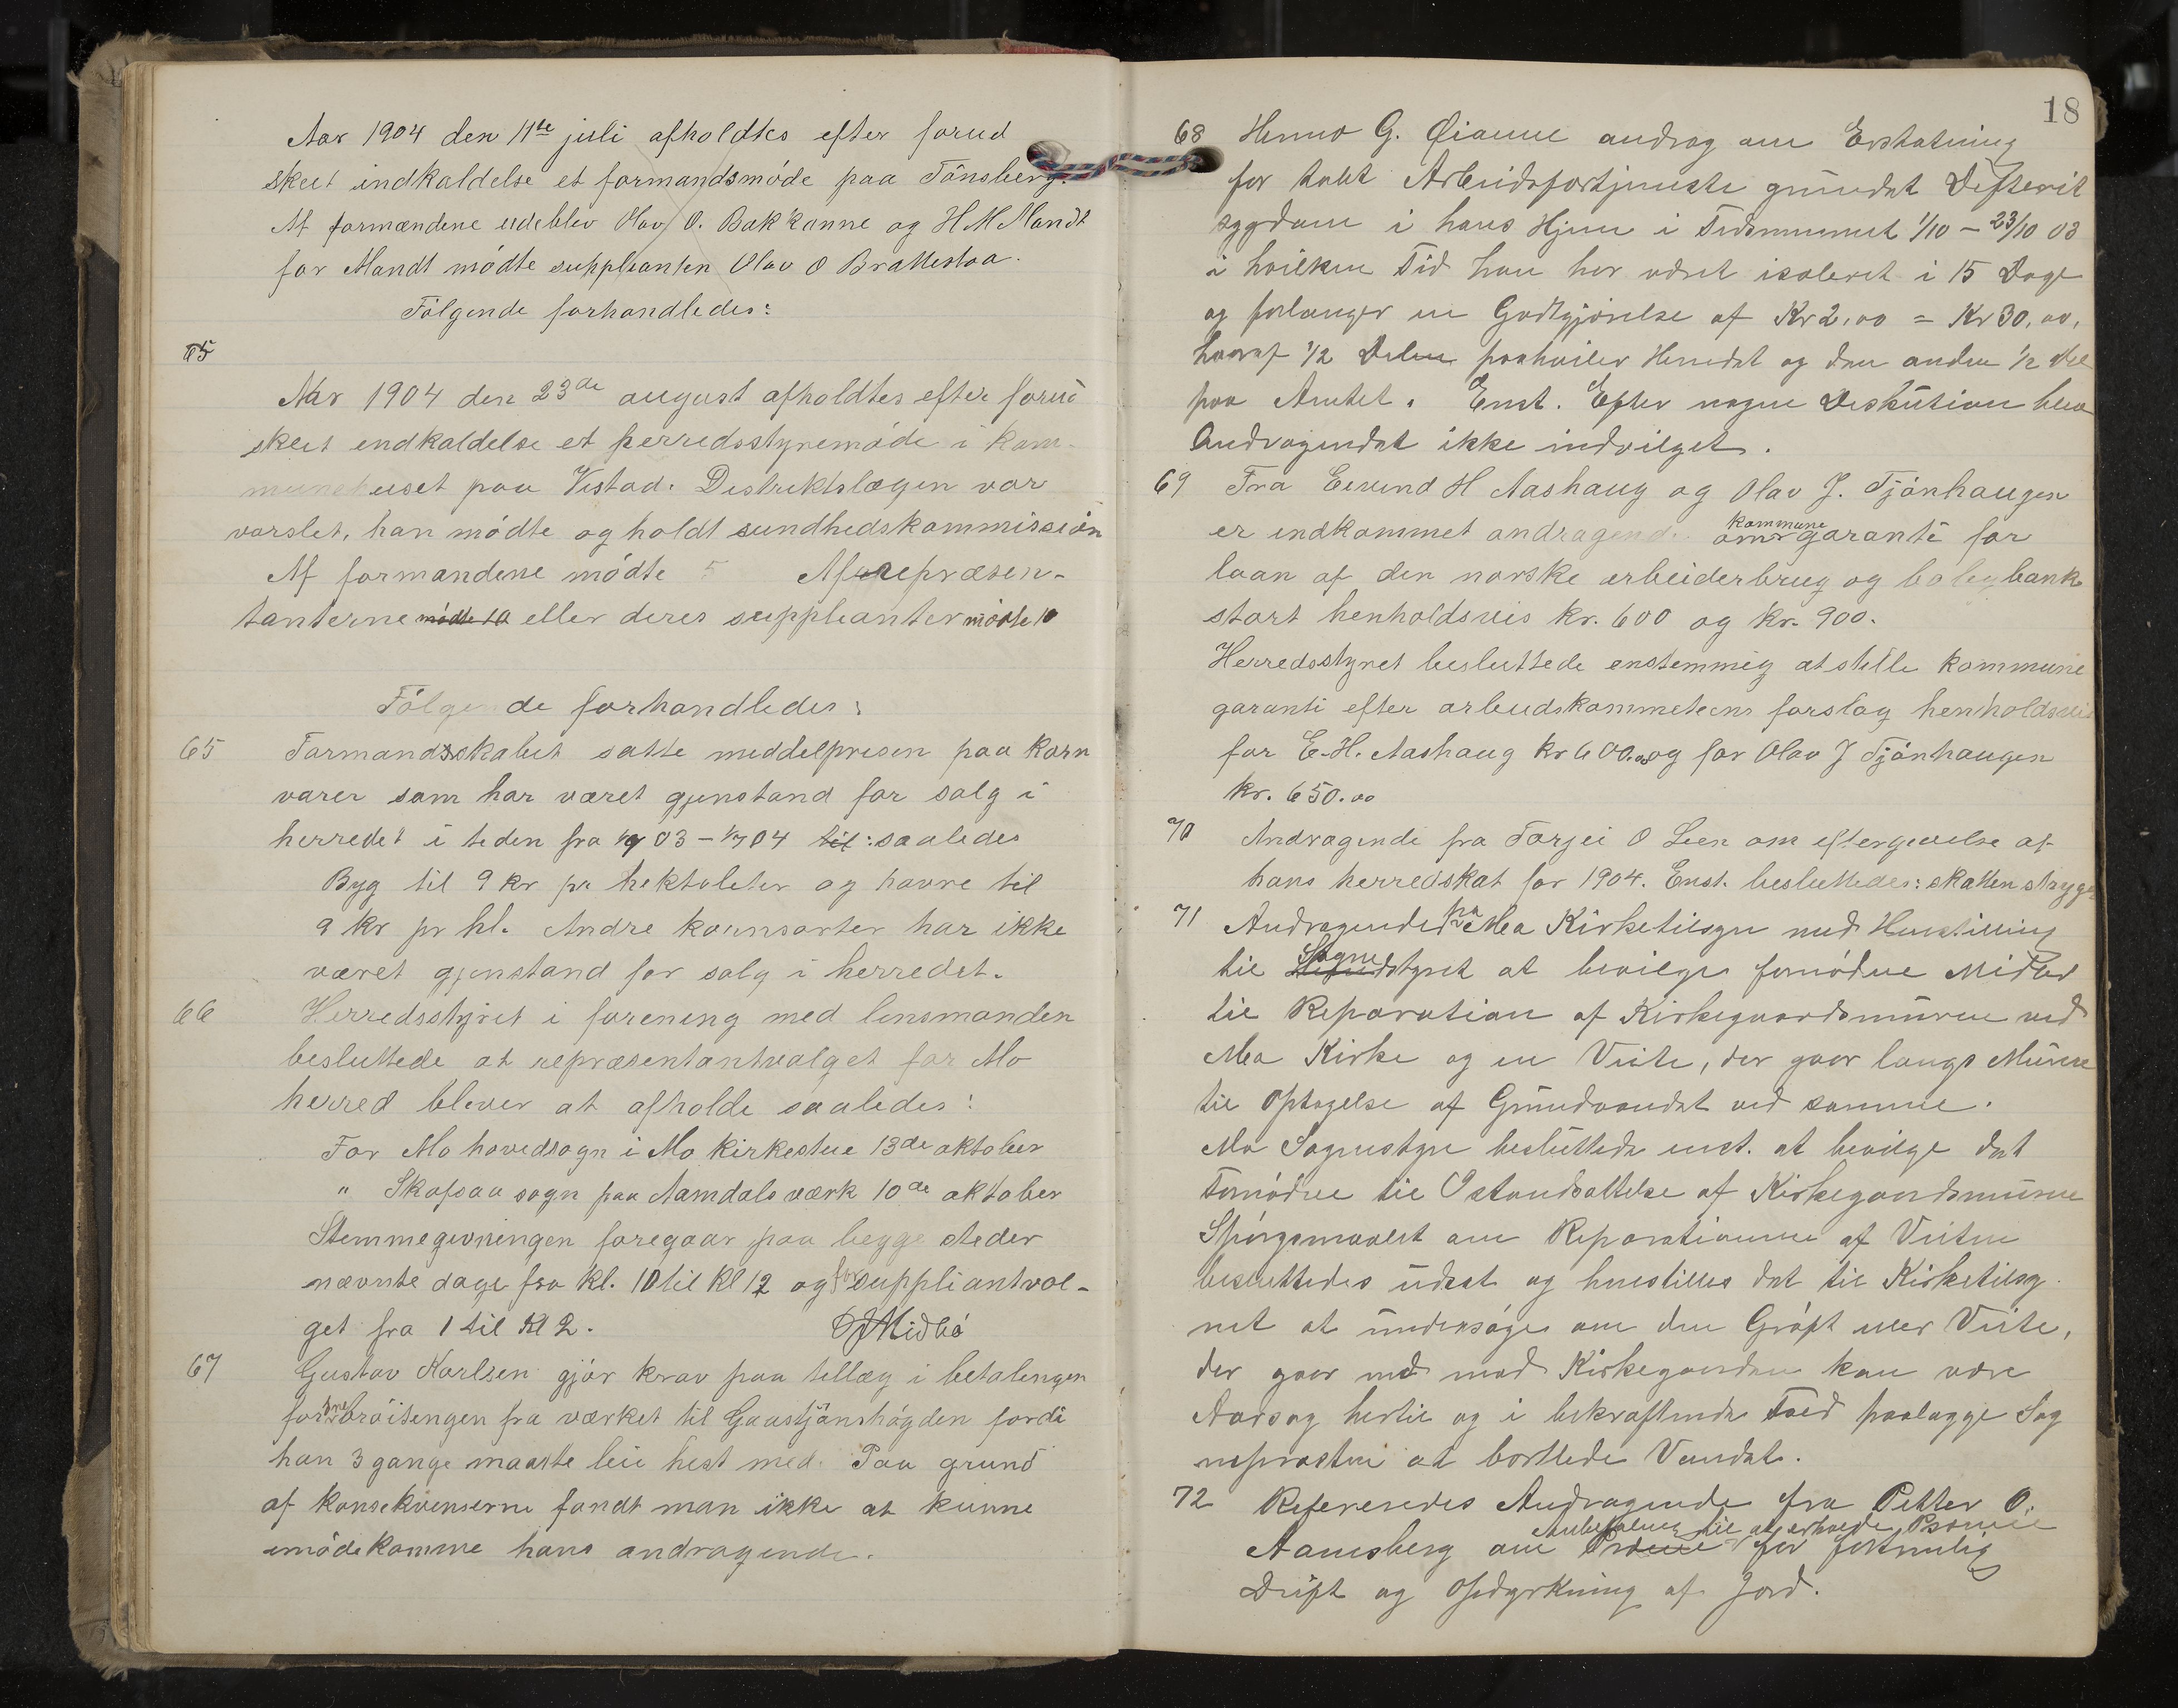 Aar 1904 den 11te juli afholdtes efter forud
skeet indkaldelse et formandsmöde paa Tönsberg.
Af formændene udeblev Olav O. Bakkanne og H M Mandt
for Mandt mödte suppleanten Olav O Brattestaa.
Fölgende forhandledes:
65
Aar 1904 den 23de august afholdtes efter forud
skeet indkaldelse et herredsstyremöde i kom-
munehuset paa Vistad. Distriktslægen var
varslet, han mödte og holdt sundhedskommission
Af formændene mödte 5 Af repræsen-
tanterne mödte 10 eller deres suppleanter mödte 10
Fölgende forhandledes:
65 Formandsskabet satte middelprisen paa korn
varer som har været gjenstand for salg i
herredet i tiden fra 1/9 03 - 1/7 04 til: saaledes
Byg til 9 kr pr hektoliter og havre til
9 kr pr hl. Andre kornsorter har ikke
været gjenstand for salg i herredet.
66 Herredsstyret i forening med lensmanden
besluttede at repræsentantvalget for Mo
herred bliver at afholde saaledes:
For Mo hovedsogn i Mo kirkestue 13de oktober
" Skafsaa sogn paa Aamdals værk 10de oktober
Stemmegivningen foregaar paa begge steder
nævnte dage fra kl. 10 til kl 12 og for suppliantval-
get fra 1 til kl 2. Midbö
67 Gustav Karlsen gjör krav paa tillæg i betalingen
for snebröitingen fra værket til Gaastjönshögden fordi
han 3 gange maatte leie hest med. Paa grund
af konsekvenserne fandt man ikke at kunne
imödekomme hans andragende.
18
68 G. Öianne androg om Erstatning
for tabt Arbeidsfortjeneste grundet Difterit
sygdom i hans Hjem i Tidsrummet 1/10 - 23/10 03
i hvilken Tid han har været isoleret i 15 Dage
og forlanger en Godtgjörelse af Kr 2,00 = Kr 30,00,
hvoraf 1/2 Delen paahviler Herredet og den anden 1/2 Del
paa Amtet. Enst. Efter nogen Diskution blev
Andragendet ikke indvilget.
69 Fra Eivind H Aashaug og Olav J. Tjönhaugen
er indkommet andragende om kommune garanti for
laan af den norske arbeiderbrug og boligbank
stort henholdsvis kr. 600 og kr. 900.
Herredsstyret besluttede enstemmig at stille kommune
garanti efter arbeidskommiteens forslag henholdsvis
for E. H. Aashaug kr 600.00 og for Olav J Tjönhaugen
kr. 650.00
70 Andragende fra Torjei O Lien om eftergivelse af
hans herredskat for 1904. Enst. besluttedes: skatten stryges
71 Andragende fra Mo Kirketilsyn med Henstilling
til Sognestyret at bevilge fornödne Midler
til Reparation af Kirkegaardsmuren ved
Mo Kirke og en Veite, der gaar langs Muren
til Optagelse af Grundvandet ved samme.
Mo Sognestyre besluttede enst. at bevilge det
Fornödne til Istandsættelse af Kirkegaardsmuren
Spörgsmaalet om Reparationen af Veiten
besluttedes udsat og henstilles det til Kirketilsy
net at undersöge om den Gröft eller Veite,
der gaar ned mod Kirkegaarden kan være
Aarsag hertil og i bekræftende Fald paalægge Sog
nepræsten at bortlede Vandet.
72 Refereredes Andragende fra Petter O.
Aamsberg om Anbefaling til at erholde Præmie for fortrinlig
Drift og Opdyrkning af Jord.